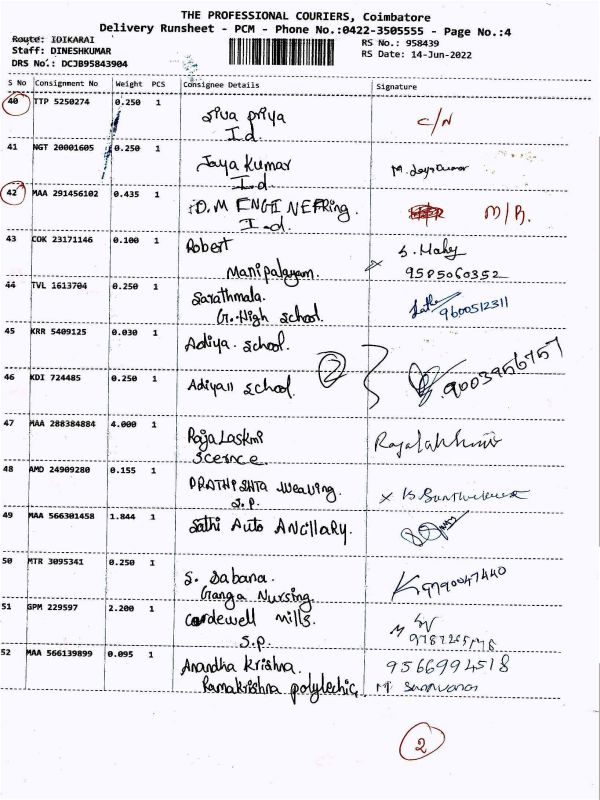 THE PROFESSIONAL COURIERS, Coimbatore
Delivery Runsheet - PCM - Phone No.:0422-3505555 - Page No.:4
Route: IDIKARAI
Staff: DINESHKUMAR
DRS No.: DCJB95843904
RS No.: 958439
RS Date: 14-Jun-2022
S No Consignment No Weight PCS Consignee Details Signature
40 TTP 5250274 0.250 1 Siva priya C/N
I.d
41 NGT 20001605 0.250 1 Jaya Kumar
I-d
42 MAA 291456102 0.435 1 D.M ENGINEERing. M/R.
I-d.
43 COK 23171146 0.100 1 Robert
Manipalayam. 9585060352
44 TVL 1613704 0.250 1 Sarathmala.
G.High School. 9600512311
45 KRR 5409125 0.030 1 Adiya. School.
46 KDI 724485 0.250 1 School. 2 9003956757
47 MAA 288384884 4.000 1 Raja Laskmi
Scernce.
48 AMD 24909280 0.155 1 PRATHISHTA Weaving.
S.P.
49 MAA 566301458 1.844 1 Sathi Auto ANCILLARY.
50 MTR 3095341 0.250 1 S. Sabana.
Ganga Nursing. 9790047440
51 GPM 229597 2.200 1 mills.
S.P.
52 MAA 566139899 0.095 1 Anandha Krishna. 9566994518
Ramakrishna polytechic,
2